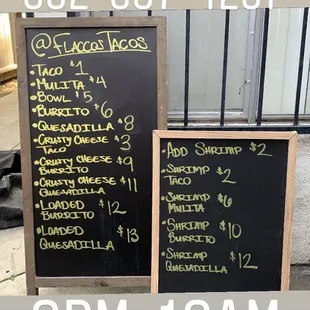 @FlaccosTacos
•Taco $1
•Mulita $4
•Bowl $5
•Burrito $6
•Quesadilla $8
•Crusty Cheese $3
Taco
•Crusty Cheese $9
Burrito
•Crusty Cheese $11
Quesadilla
•Loaded $12
Burrito
•Loaded $13
Quesadilla
•Add Shrimp $2
•Shrimp $2
Taco
•Shrimp $6
Mulita
•Shrimp $10
Burrito
•Shrimp $12
Quesadilla